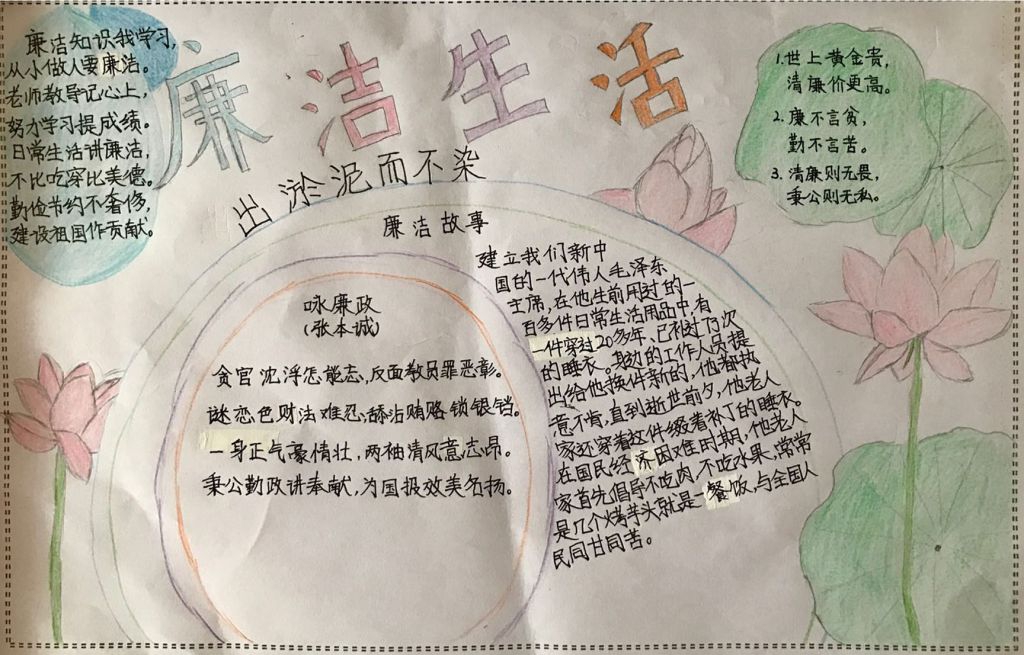 廉洁生活
出淤泥而不染
廉洁知识我学习,
从小做人要廉洁。
老师教导记心上,
努力学习提成绩。
日常生活讲廉洁,
不比吃穿比美德。
勤俭节约不奢侈,
建设祖国作贡献。
1.世上黄金贵,
清廉价更高。
2.廉不言贫,
勤不言苦。
3.清廉则无畏,
秉公则无私。
廉洁故事
咏廉政
(张本诚)
贪官沈浮怎能忘,反面教员罪恶彰。
谜恋色财法难忍,舔沾贿赂锁银铛。
一身正气豪情壮,两袖清风意志昂。
秉公勤政讲奉献,为国报效美名扬。
建立我们新中
国的一代伟人毛泽东
主席,在他生前用过的一
百多件日常生活用品中,有
一件穿过20多年、已补过73次
的睡衣。身边的工作人员提
出给他换件新的,他都执
意不肯,直到逝世前夕,他老人
家还穿着这件缀着补丁的睡衣。
在国民经济困难时期,他老人
家首先倡导不吃肉,不吃水果,常常
是几个烤芋头就是一餐饭,与全国人
民同甘同苦。